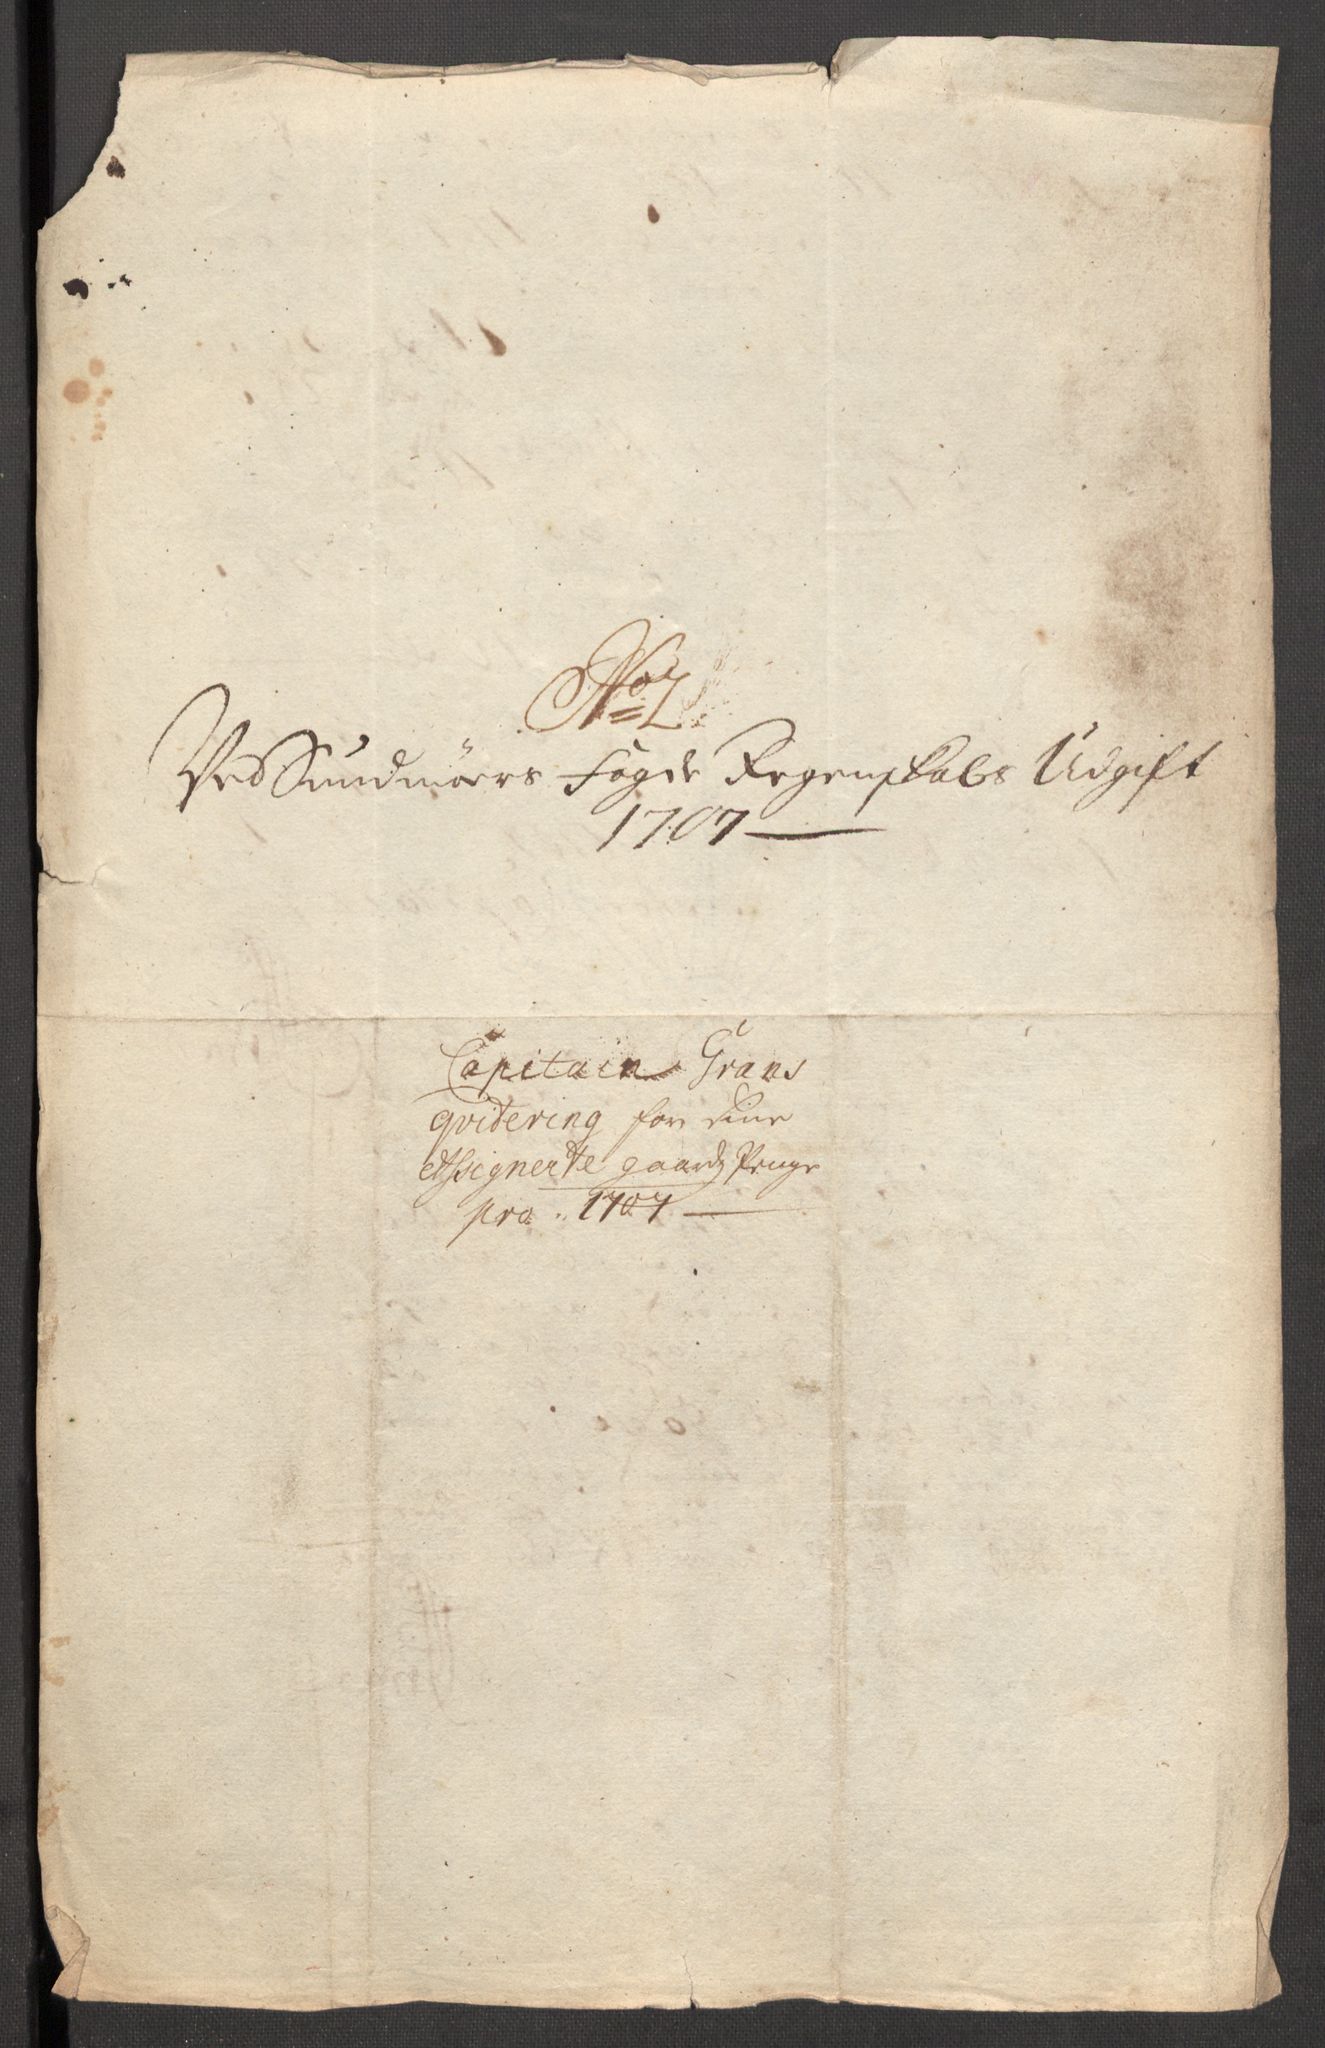 No
Ved Sundmöers Fogde Regenskabs Udgift
1707
Capitain Grans
qvitering for sine
Assignerte gaards Penge
pro. 1707